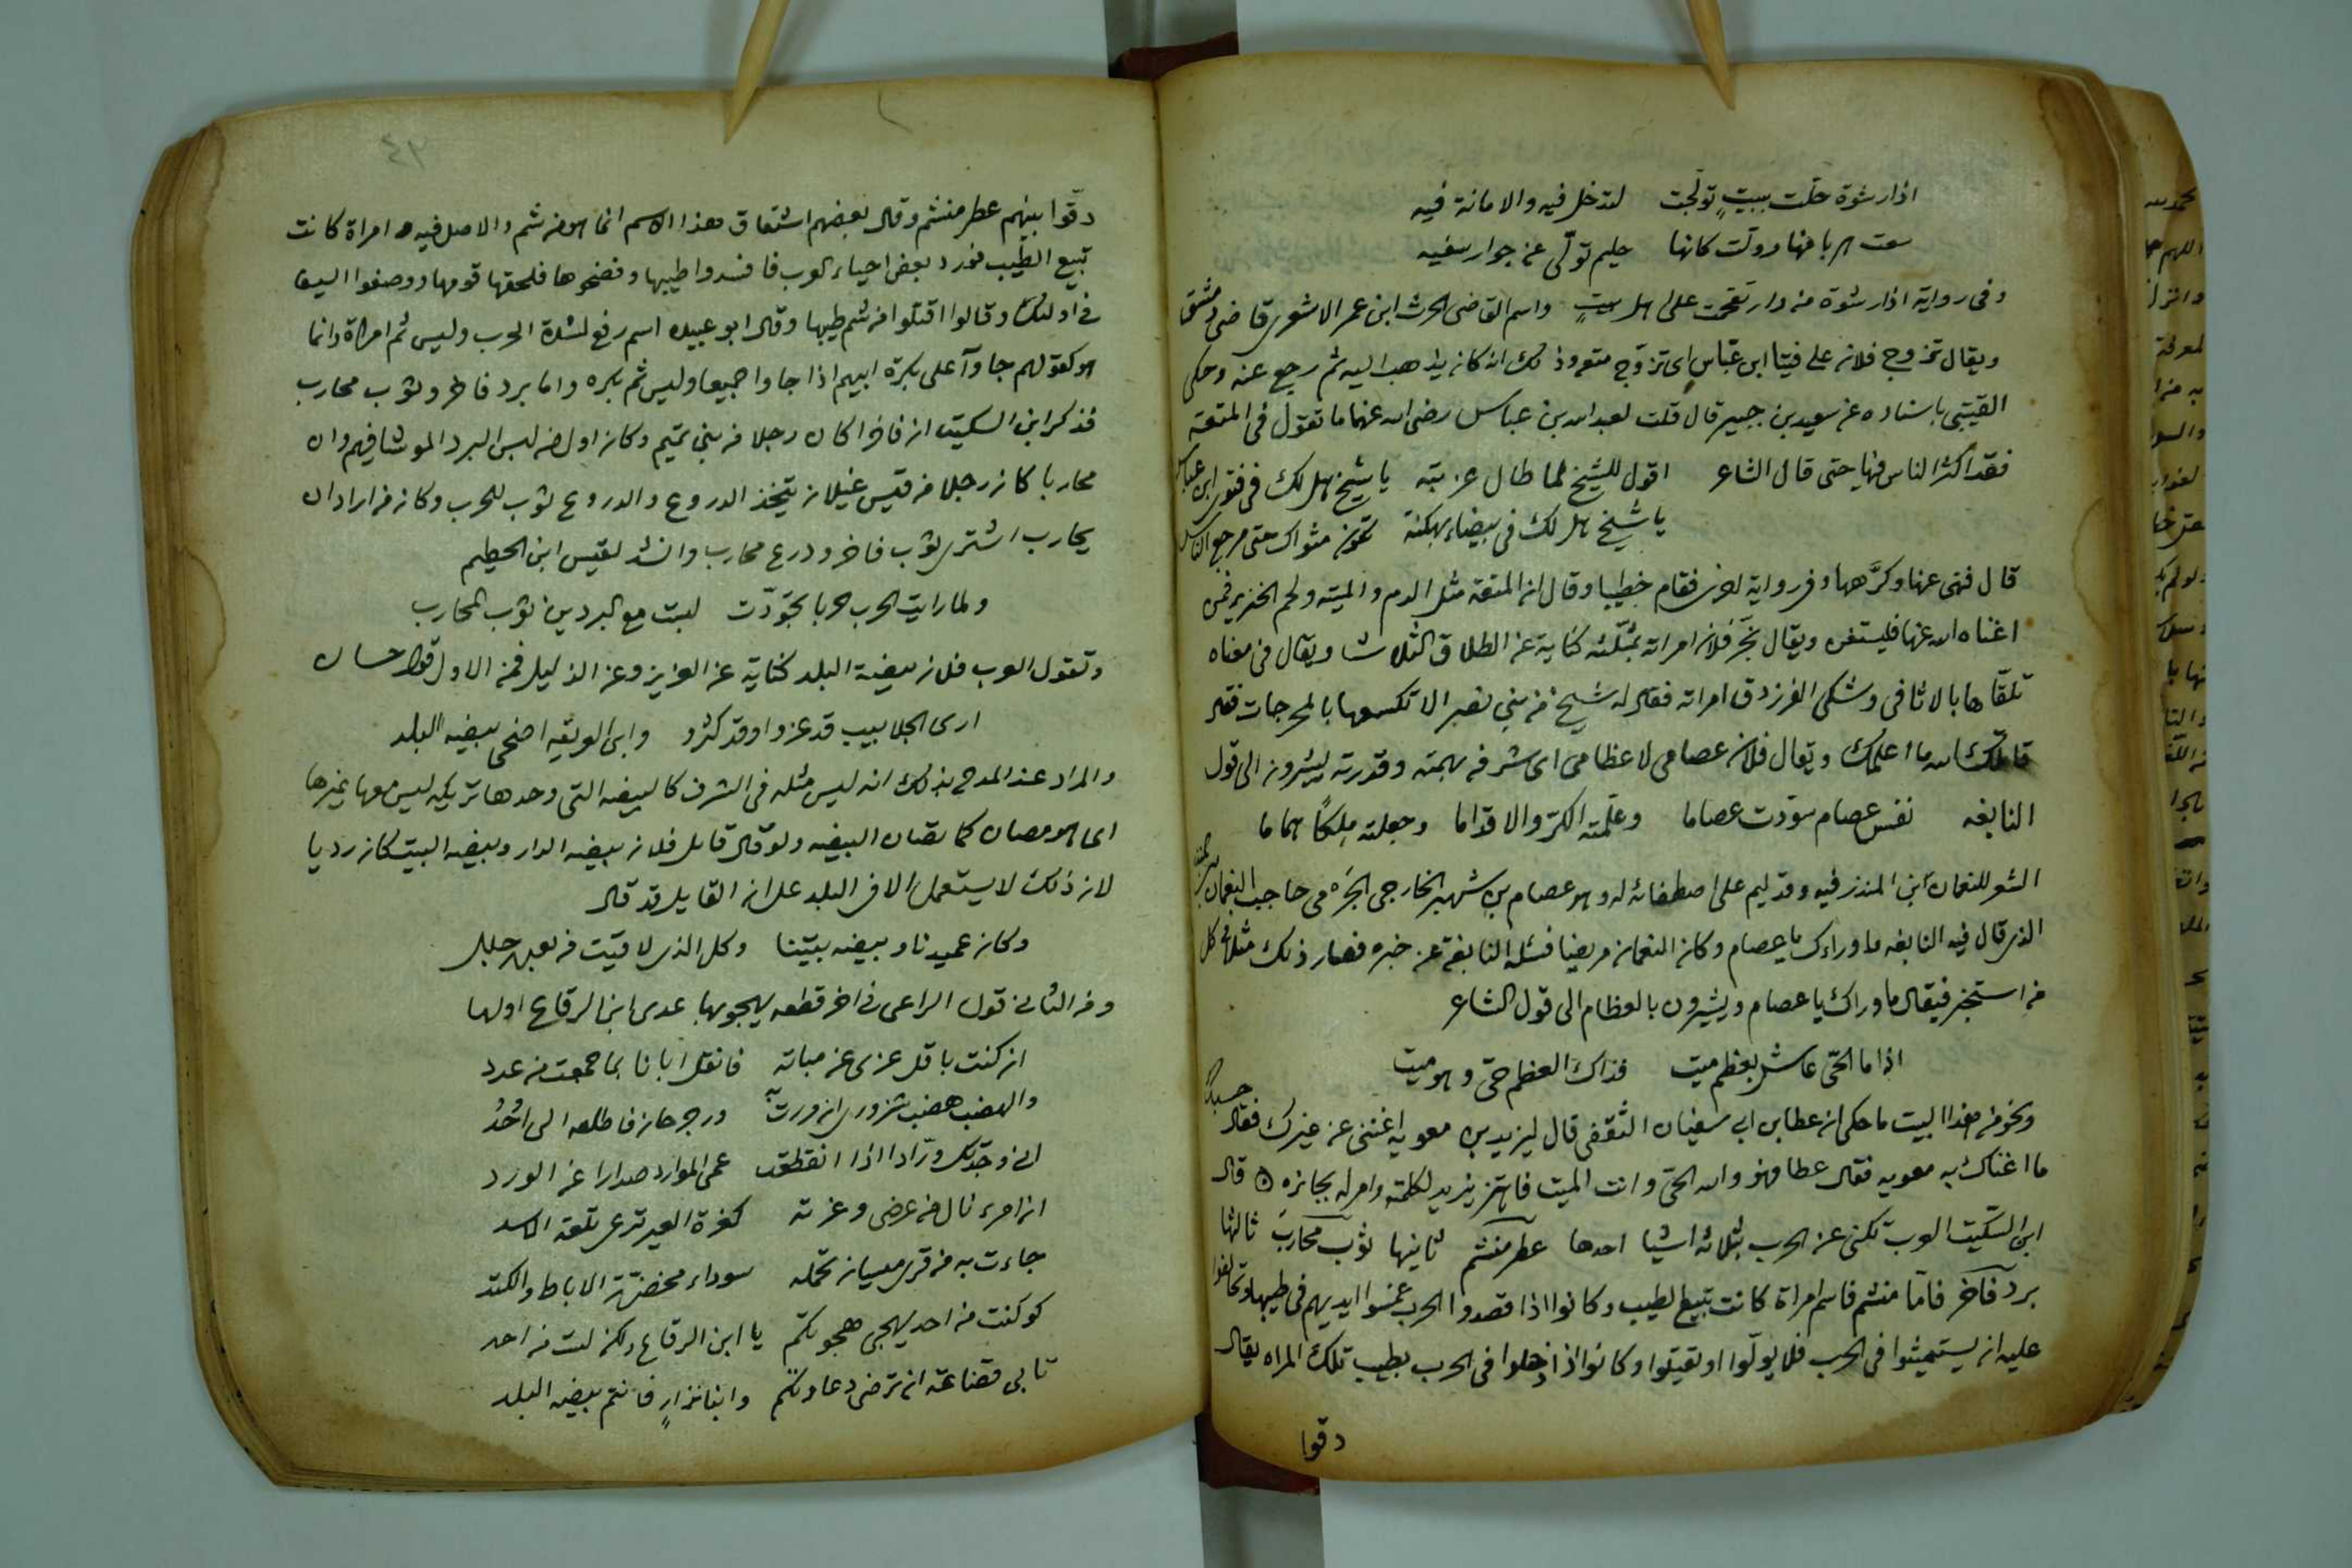 اذا رشوة حلت ببيت تولجت لتدخل فيه والامانة فيه
سعت هربا منها وولت كانها حليم تولى عن جوار سفيه
وفي رواية اذا رشوة من دار تقحمت على اهل بيت واسم القاضي الحرث ابن عمر الاشعري قاضي دمشق
ويقال تزوج فلان على فتيا ابن عباس اي تزوج متعه وذلك انه كان يذاهب اليه ثم رجع عنه وحكى
القتيبي باسناده عن سعيد بن جبير قال قلت لعبد الله بن عباس رضي الله عنهما ما تقول في المتعة
فقد اكثر الناس فيها حتى قال الشاعر اقول للشيخ لما طال عزبته يا شيخ هل لك في فتوى ابن عباس
يا شيخ هل لك في بيضاء بهكنة تكون مثواك حتى مرجع الناس
قال فنهى عنها وكرهها وفي رواية اخرى فقام خطيبا وقال ان المتعة مثل الدم والميته ولحم الخنزير فمن
اغناه الله عنها فليستغن ويقال نجز فلان امراته بمثلثه كناية عن الطلاق الثلاث ويقال في معناه
تلقاها بالاثافي وشكى الفرزدق امراته فقال له شيخ من بني نضير الا تكسعها بالمحرجات فقال
قاتلك الله ما اعلمك ويقال فلان عصامي لا عظامي اي شرفه بهمته وقدرته يشيرون الى قول
النابغه نفس عصام سودت عصاما وعلمته الكر والاقداما وجعلته ملكا هماما
الشعر للنعمان ابن المنذر فيه وقد ليم على اصطفائه له وهو عصام بن شهبر الخارجي الجرمي حاجب النعمان بن المنذر
الذي قال فيه النابغه ما وراءك يا عصام وكان النعمان مريضا فسئله النابغة عن خبره فصار ذلك مثلا في كل
من استخبر فيقال ما وراك يا عصام ويشيرون بالعظام الى قول الشاعر
اذا ما الحي عاش بعظم ميت فذاك العظم حي وهو ميت
ونحو من هذا البيت ما حكى ان عطا بن ابي سفيان الثقفي قال ليزيد بن معويه اغنني عن غيرك فقال حسبك
ما اغناك به معويه فقال عطا فهو والله الحي وانت الميت فاهتز يزيد لكلمته وامر له بجائزه ه قال
ابن السكيت العرب تكني عن الحرب بثلاثه اشيا احدها عطر منشم ثانيها ثوب محارب ثالثها
برد فاخر فاما منشم فاسم امراة كانت تبيع الطيب وكانوا اذا قصدوا الحرب غمسوا ايديهم في طيبها وتحالفوا
عليه ان يستميتوا في الحرب فلا يولوا او يقتلوا وكانوا اذا دخلوا في الحرب بطيب تلك المراه يقال
دقوا
٤٢
دقوا بينهم عطر منشم وقال بعضهم اشتقاق هذا الاسم انما هو من شم والاصل فيه امراة كانت
تبيع الطيب فورد بعض احياء العرب فافسدوا طيبها وفضحوها فلحقها قومها ووضعوا السيف
في اولئك وقالوا اقتلوا من شم طيبها وقال ابو عبيده اسم رفع لشدة الحرب وليس ثم امراة وانما
هو كقولهم جاوا على بكرة ابيهم اذا جاوا جميعا وليس ثم بكره واما برد فاخر وثوب محارب
فذكر ابن السكيت ان فاخرا كان رجلا من بني تميم وكان اول من لبس البرد الموشا فيهم وان
محاربا كان رجلا من قيس غيلان يتخذ الدروع والدروع ثوب للحرب وكان من اراد ان
يحارب اشترى ثوب فاخر ودرع محارب وانشد لقيس ابن الحطيم
ولما رايت الحرب حربا تجردت لبست مع البردين ثوب المحارب
وتقول العرب فلان بيضة البلد كناية عن العزيز وعن الذليل فمن الاول قول حسان
ارى الجلابيب قد عزوا وقد كثروا وابن الفريعه اضحى بيضه البلد
والمراد عند المدح بذلك انه ليس مثله في الشرف كالبيضه التي وحدها تريكه ليس معها غيرها
اي هو مصان كما تصان البيضه ولو قال قايل فلان بيضه الدار وبيضه البيت كان رديا
لان ذلك لا يستعمل الا في البلد على ان القايل قد قال
وكان عميدنا وبيضه بيتنا وكل الذي لاقيت من بعد جلل
ومن الثاني قول الراعي في اخر قطعه يهجو بها عدي ابن الرقاع اولها
ان كنت ناقل عزي عن مباته فانقل ابانا بما جمعت من عدد
والهضب هضب شروري ان مررت به
اني وجدتك ورادا اذا انقطعت عمي الموارد صدارا عن الورد
ان امرء نال من عرضي وعزته كغرة العير ترعى تلعة الاسد
جاءت به من قرى ميسان تحمله سوداء مخضرة الاباط والكتد
لو كنت من احد يهجى هجوتكم يا ابن الرقاع ولكن لست من احد
تابى قضاعته ان ترضى دعاوتكم وابنا نزار فانتم بيضه البلد